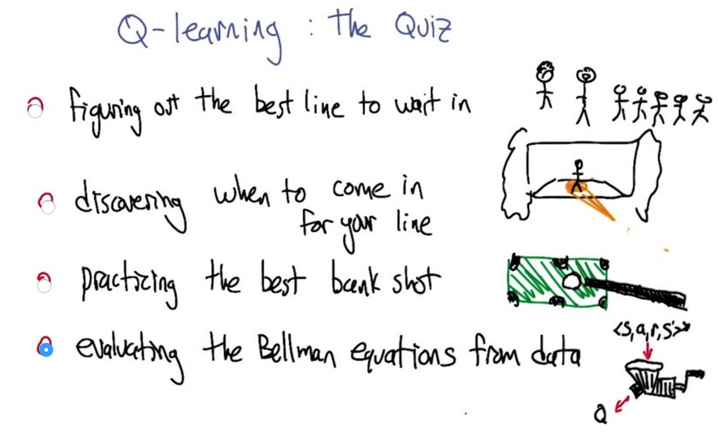 Q-learning : the Quiz
figuring out the best line to wait in
discovering when to come in
for your line
practicing the best bank shot
evaluating the Bellman equations from data
<s,a,r,s'>
Q